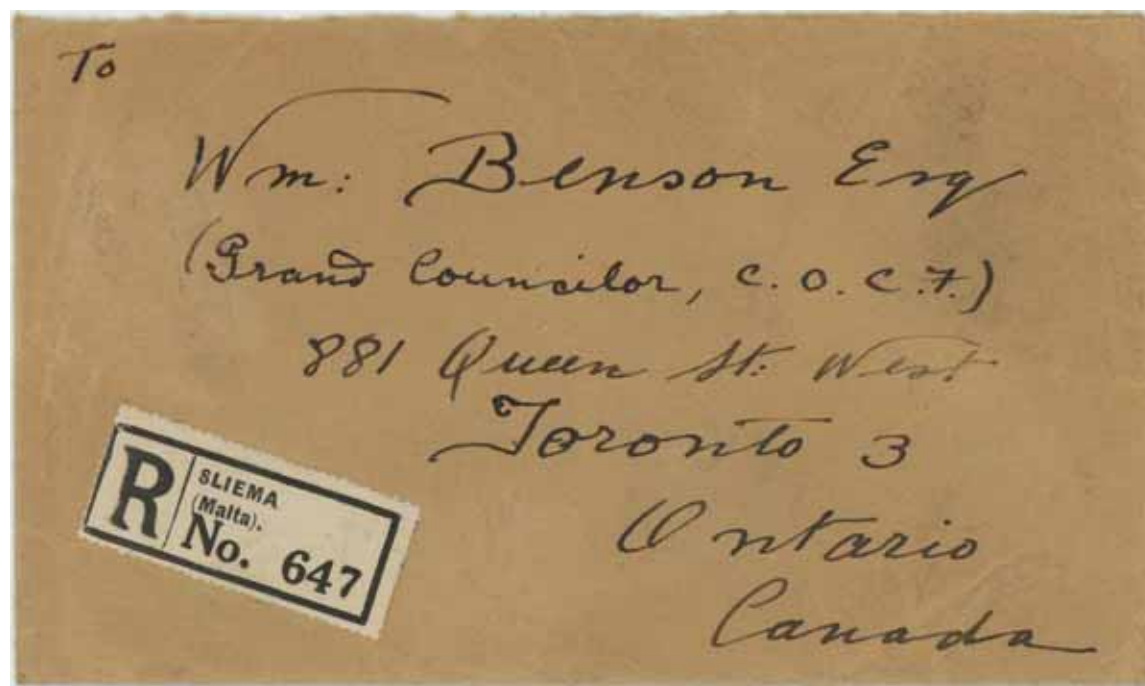 To
Wm: Benson Esq
(Grand Councilor, C.O.C.F.)
881 Queen St: West
Toronto 3
Ontario
Canada
R
SLIEMA
(Malta).
No. 647